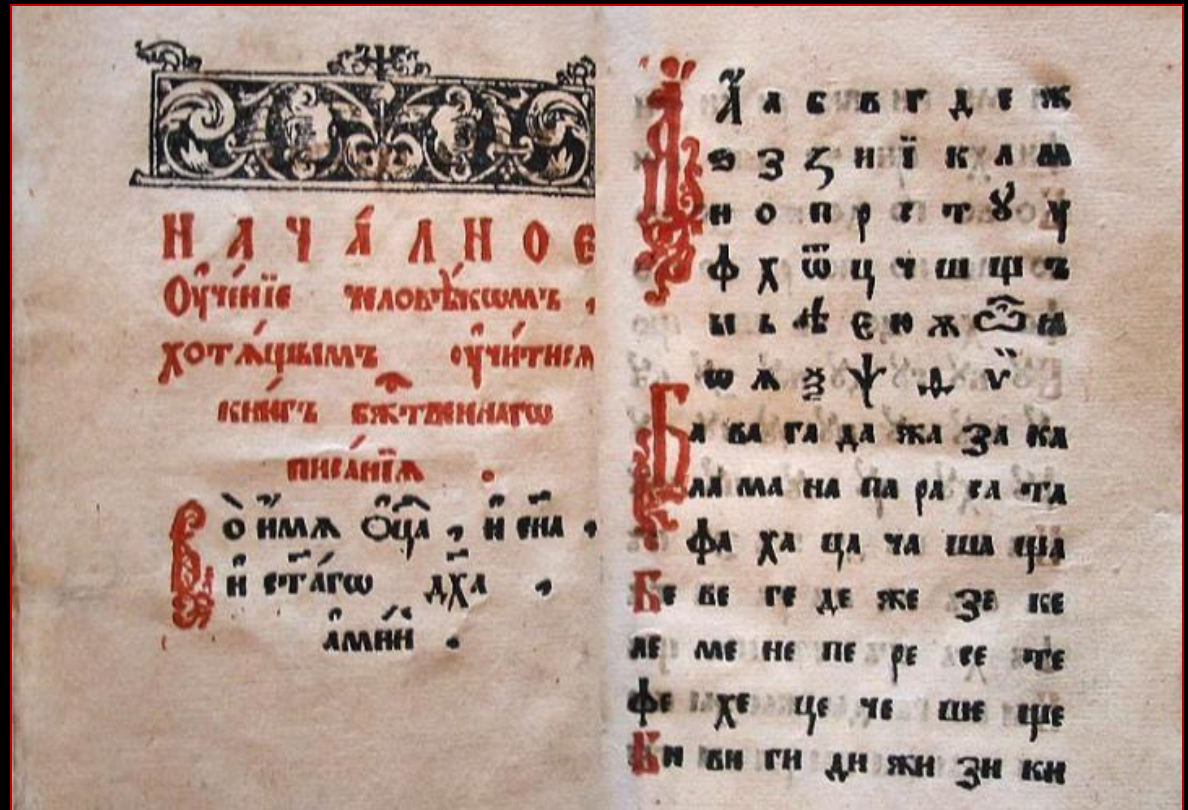 НАЧА́ЛНОЕ
Оу҆че́нїе человѣ́кωмъ ,
хотѧ́щымъ оу҆чи́тисѧ
кни́гъ бж҃твеннагω
писа́нїѧ .
Во̀ и҆́мѧ Ѻ҆ц҃а , и҆ сн҃а ,
и҆ ст҃а́гω дх҃а ,
а҆ми́нь .
А҆ а б в г д е ж
ѕ з ꙁ и ї к л м
н о п р с т ꙋ у
ф х ѿ ц ч ш щ ъ
ы ь ѣ є ю ж ѽ ꙗ
ω ѧ ѯ ѱ ѳ ѵ̈
Ба ва га да жа за ка
ла ма на па ра са та
фа ха ца ча ша ща
Бе ве ге де же зе ке
ле ме не пе ре се те
фе хе це че ше ще
Би ви ги ди жи зи ки